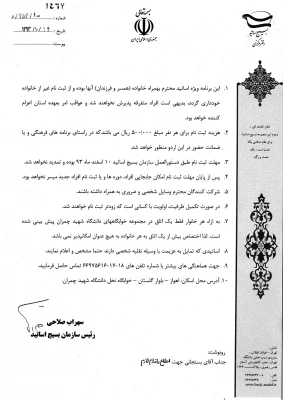 ۱۴۶۷
بسمه تعالی
جمهوری اسلامی ایران
شماره:
تاریخ:
پیوست:
بسیج اساتید
۱. این برنامه ویژه اساتید محترم بهمراه خانواده (همسر و فرزندان) آنها بوده و از ثبت نام غیر از خانواده
خودداری گردد، بدیهی است افراد متفرقه پذیرش نخواهند شد و عواقب امر بعهده استان اعزام
کننده خواهد بود.
۲. هزینه ثبت نام برای هر نفر مبلغ ۵۰۰/۰۰۰ ریال می باشد که در راستای برنامه های فرهنگی و یا
ضمانت حضور در این اردو منظور خواهد شد.
۳. مهلت ثبت نام طبق دستورالعمل سازمان بسیج اساتید ۱۰ اسفند ماه ۹۳ بوده و تمدید نخواهد شد.
۴. پس از پایان مهلت ثبت نام امکان جابجایی افراد، دوره ها و یا ثبت نام افراد جدید میسر نخواهد بود.
۵. شرکت کنندگان محترم وسایل شخصی و ضروری به همراه داشته باشند.
۶. در صورت تکمیل ظرفیت، اولویت با کسانی است که زودتر ثبت نام خواهند شد.
۷. به ازاء هر خانوار فقط یک اتاق در مجموعه خوابگاههای دانشگاه شهید چمران پیش بینی شده
است. لذا اختصاص بیش از یک اتاق به هر خانواده به هیچ عنوان امکانپذیر نمی باشد.
۸. اساتیدی که تمایل به عزیمت با وسیله نقلیه شخصی دارند حتما مشخص و اعلام نمایند.
۹. جهت هماهنگی های بیشتر با شماره تلفن های ۱۸-۱۷-۶۶۹۷۵۶۱۶ تماس حاصل فرمایید.
۱۰. آدرس محل اسکان: اهواز – بلوار گلستان – خوابگاه نخل دانشگاه شهید چمران.
سهراب صلاحی
رئیس سازمان بسیج اساتید
رونوشت:
جناب آقای بستجانی جهت